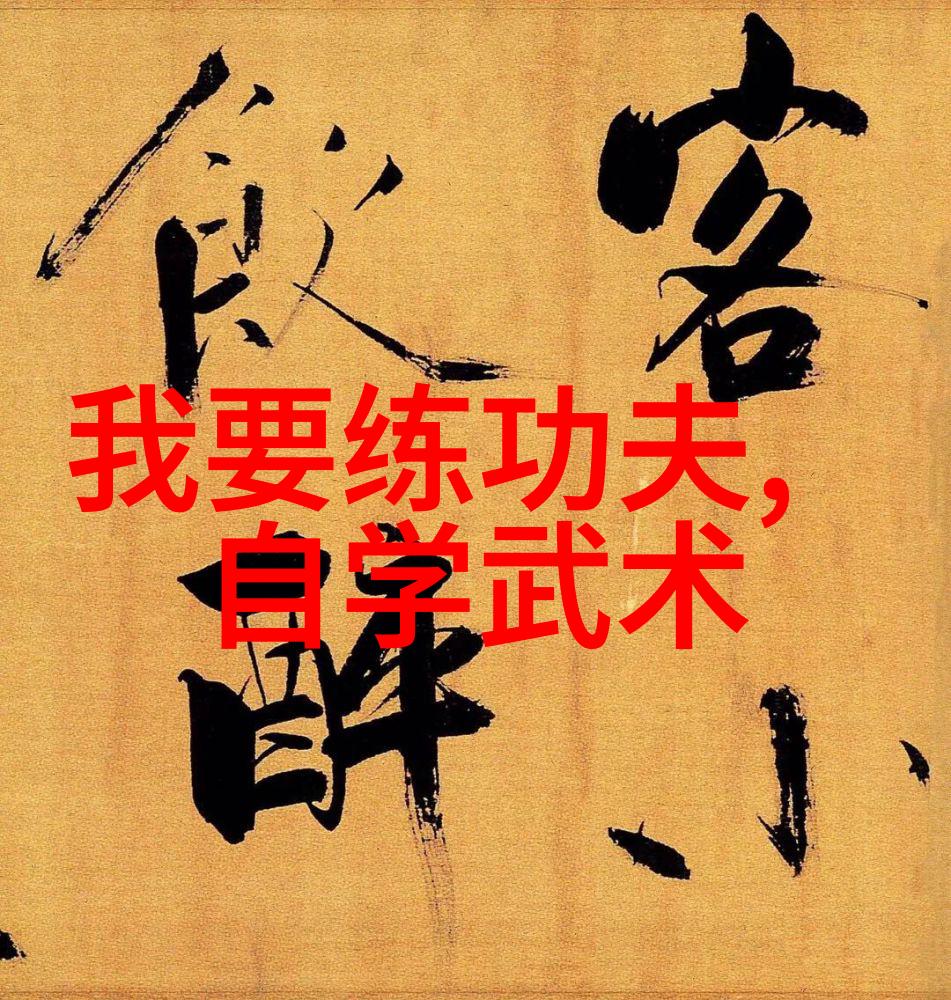 客小
飲醉
我要练功夫,
自学武术